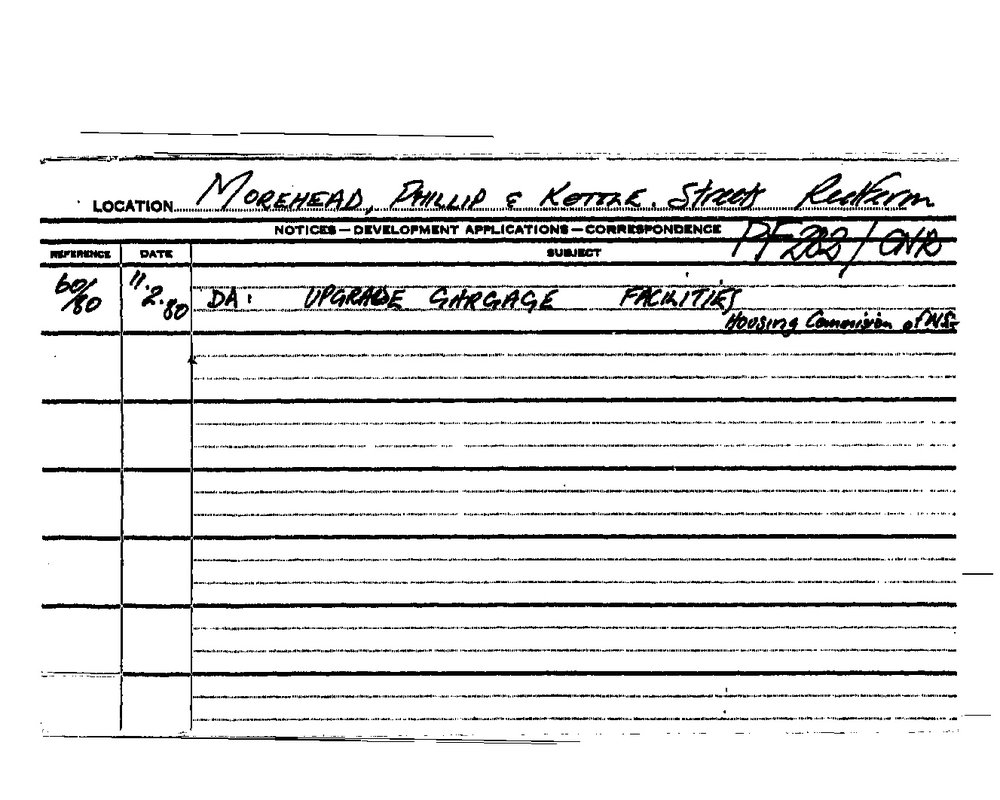 LOCATION MOREHEAD, PHILLIP & KETTLE. Streets Redfern
NOTICES—DEVELOPMENT APPLICATIONS—CORRESPONDENCE
REFERENCE DATE SUBJECT
60/80 11.2.80 DA: UPGRADE GARGAGE FACILITIES
Housing Commision of N.S.